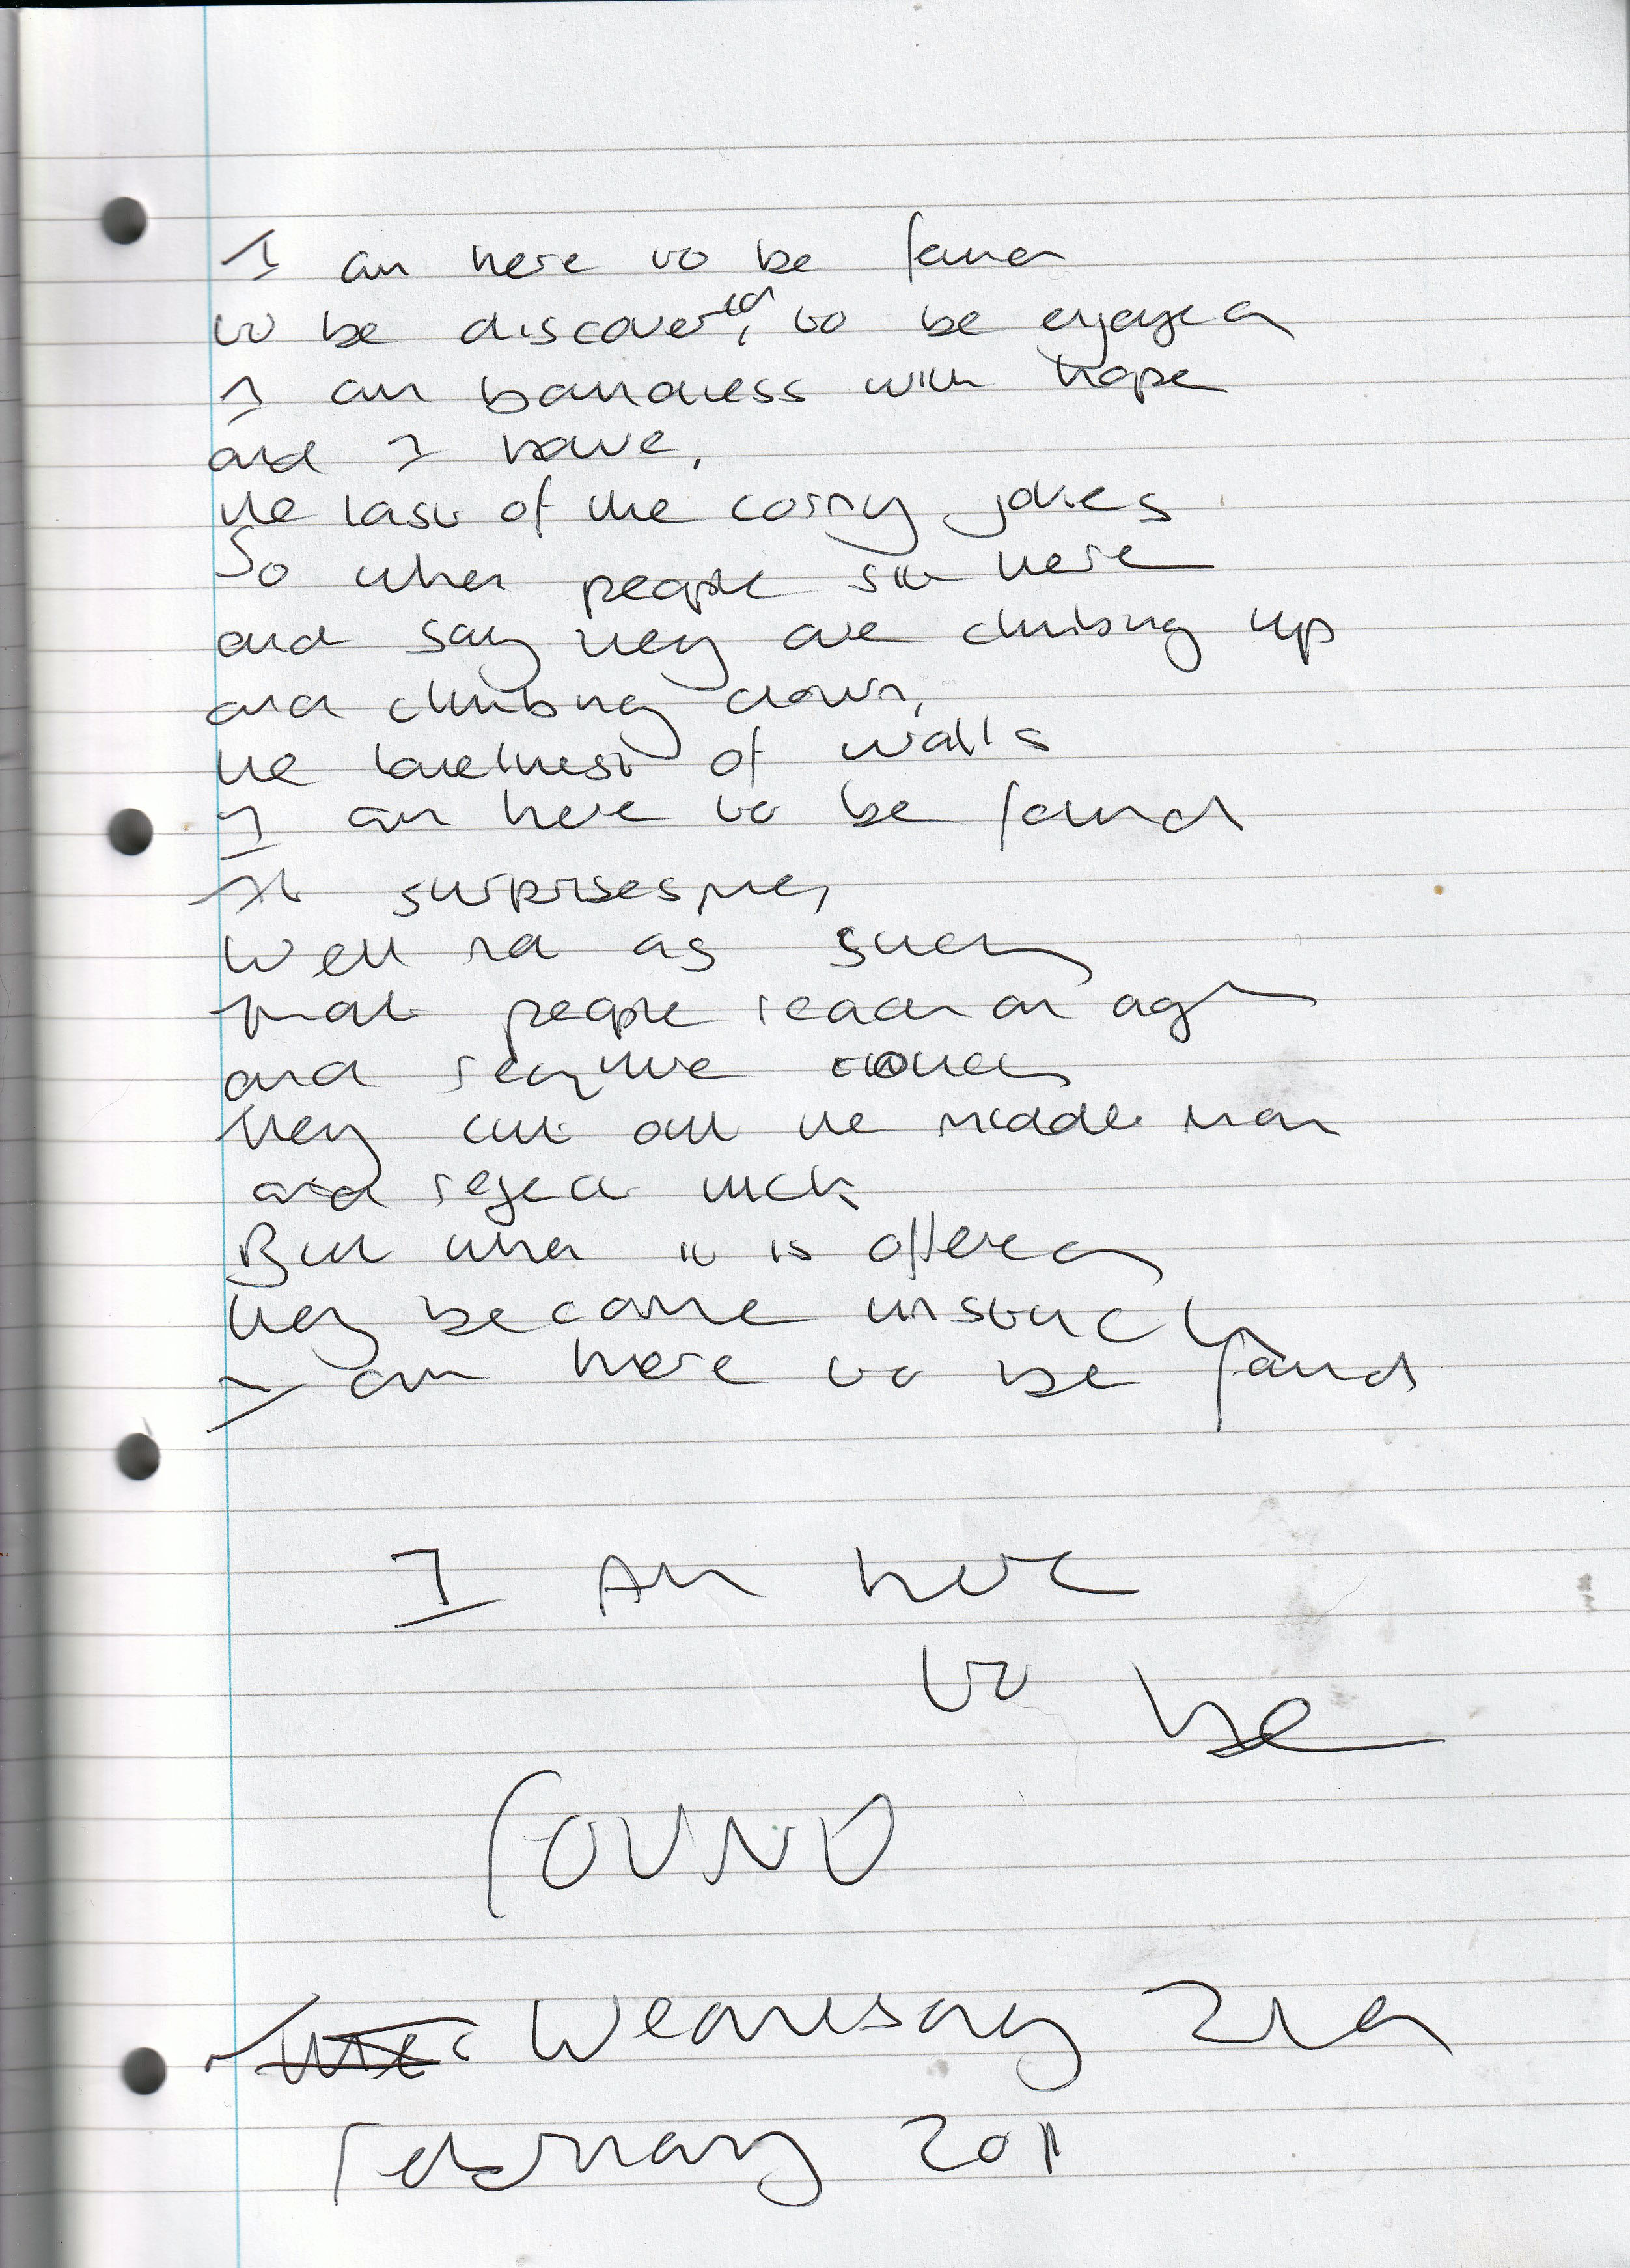 I am here to be found
to be discovered, to be enjoyed
I am boundless with hope
and I have,
the last of the corny jokes
So when people sit here
and say they are climbing up
and climbing down,
the loneliness of walls
I am here to be found
It surprises me,
Well not as such
that people reach an age
and require
they cut out the middle man
and reject luck
But when it is offered
they become unstuck
I am here to be found
I Am here
to be
FOUND
Wednesday 2nd
February 2011